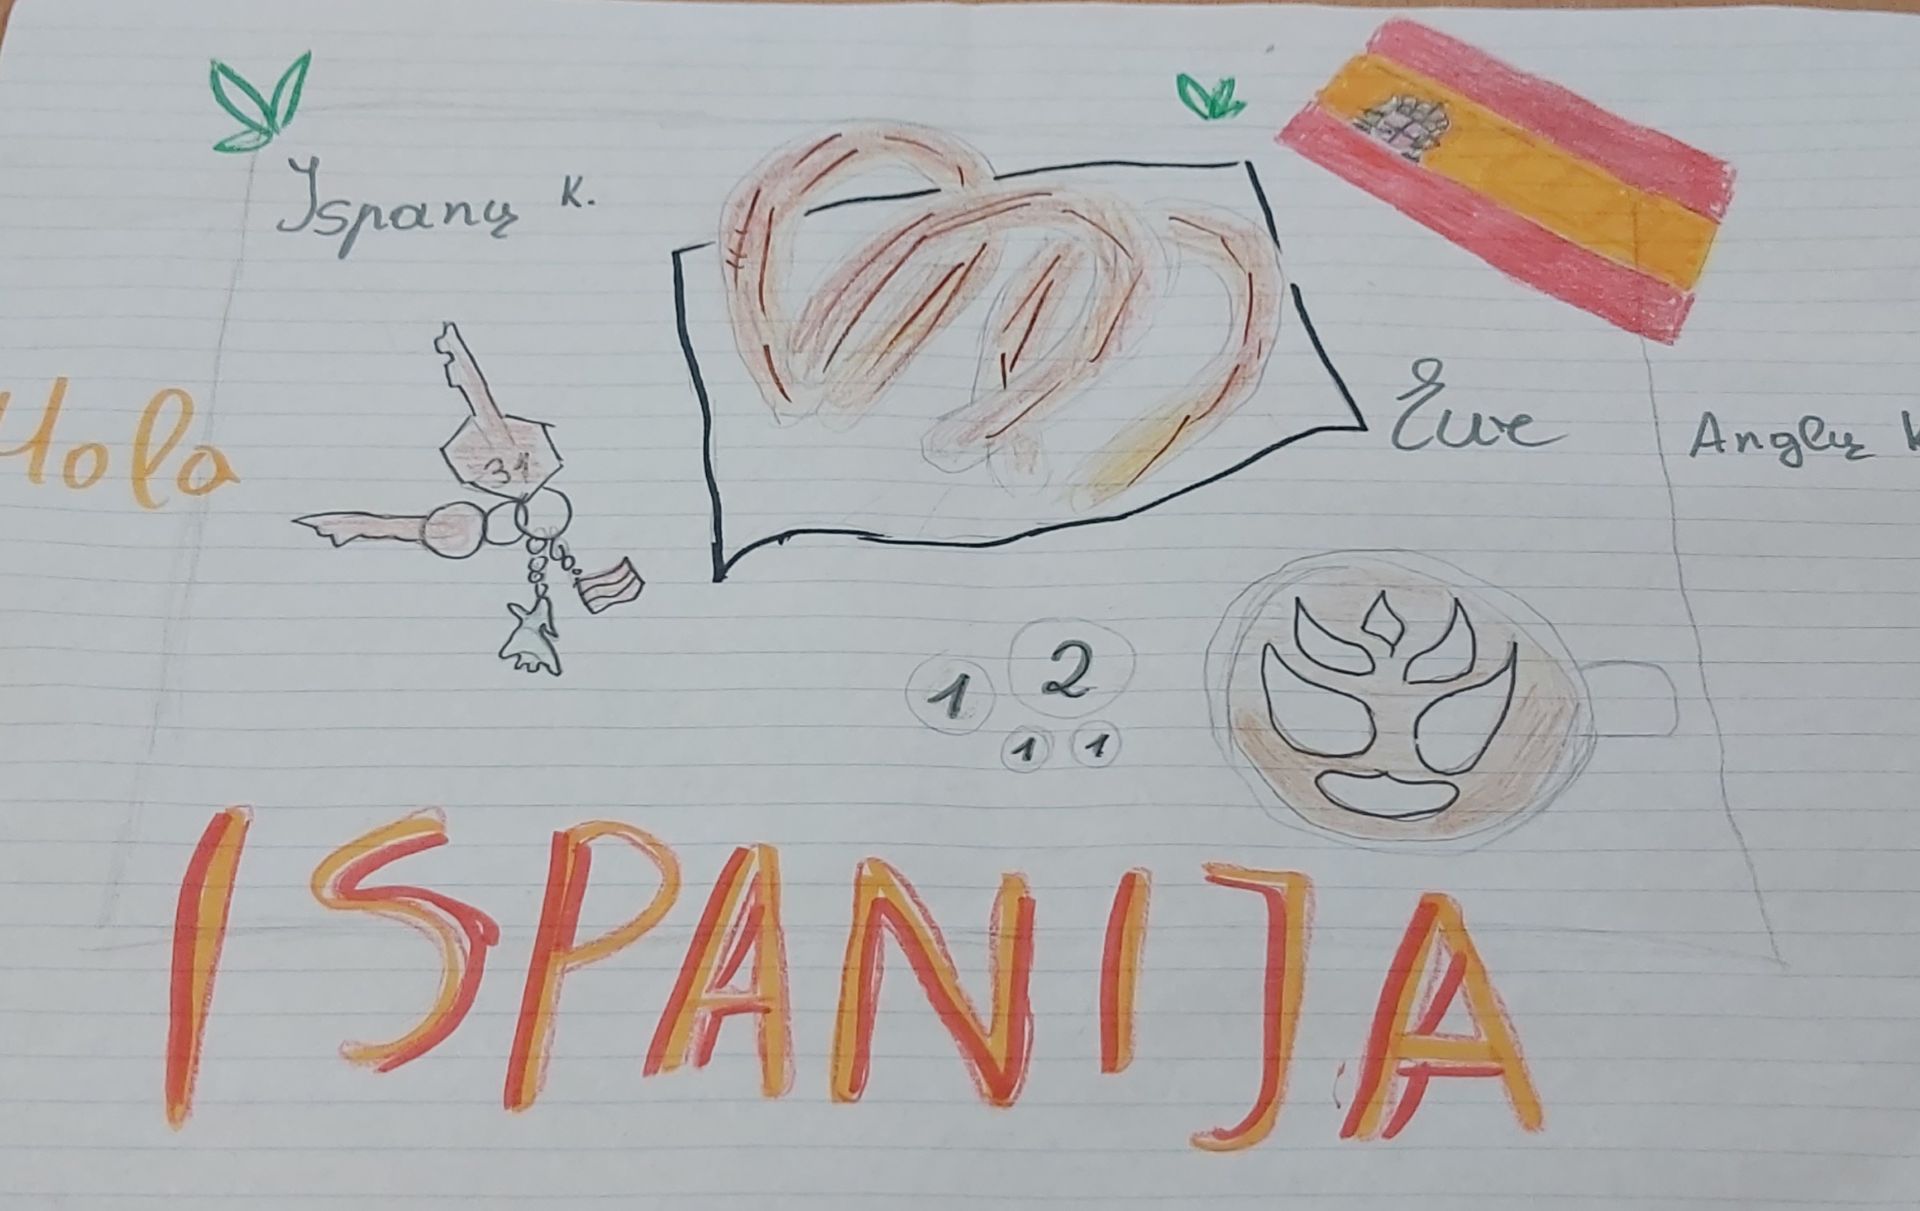 Ispanų K.
Hola
31
Eure
Anglų K
1 2
1 1
ISPANIJA